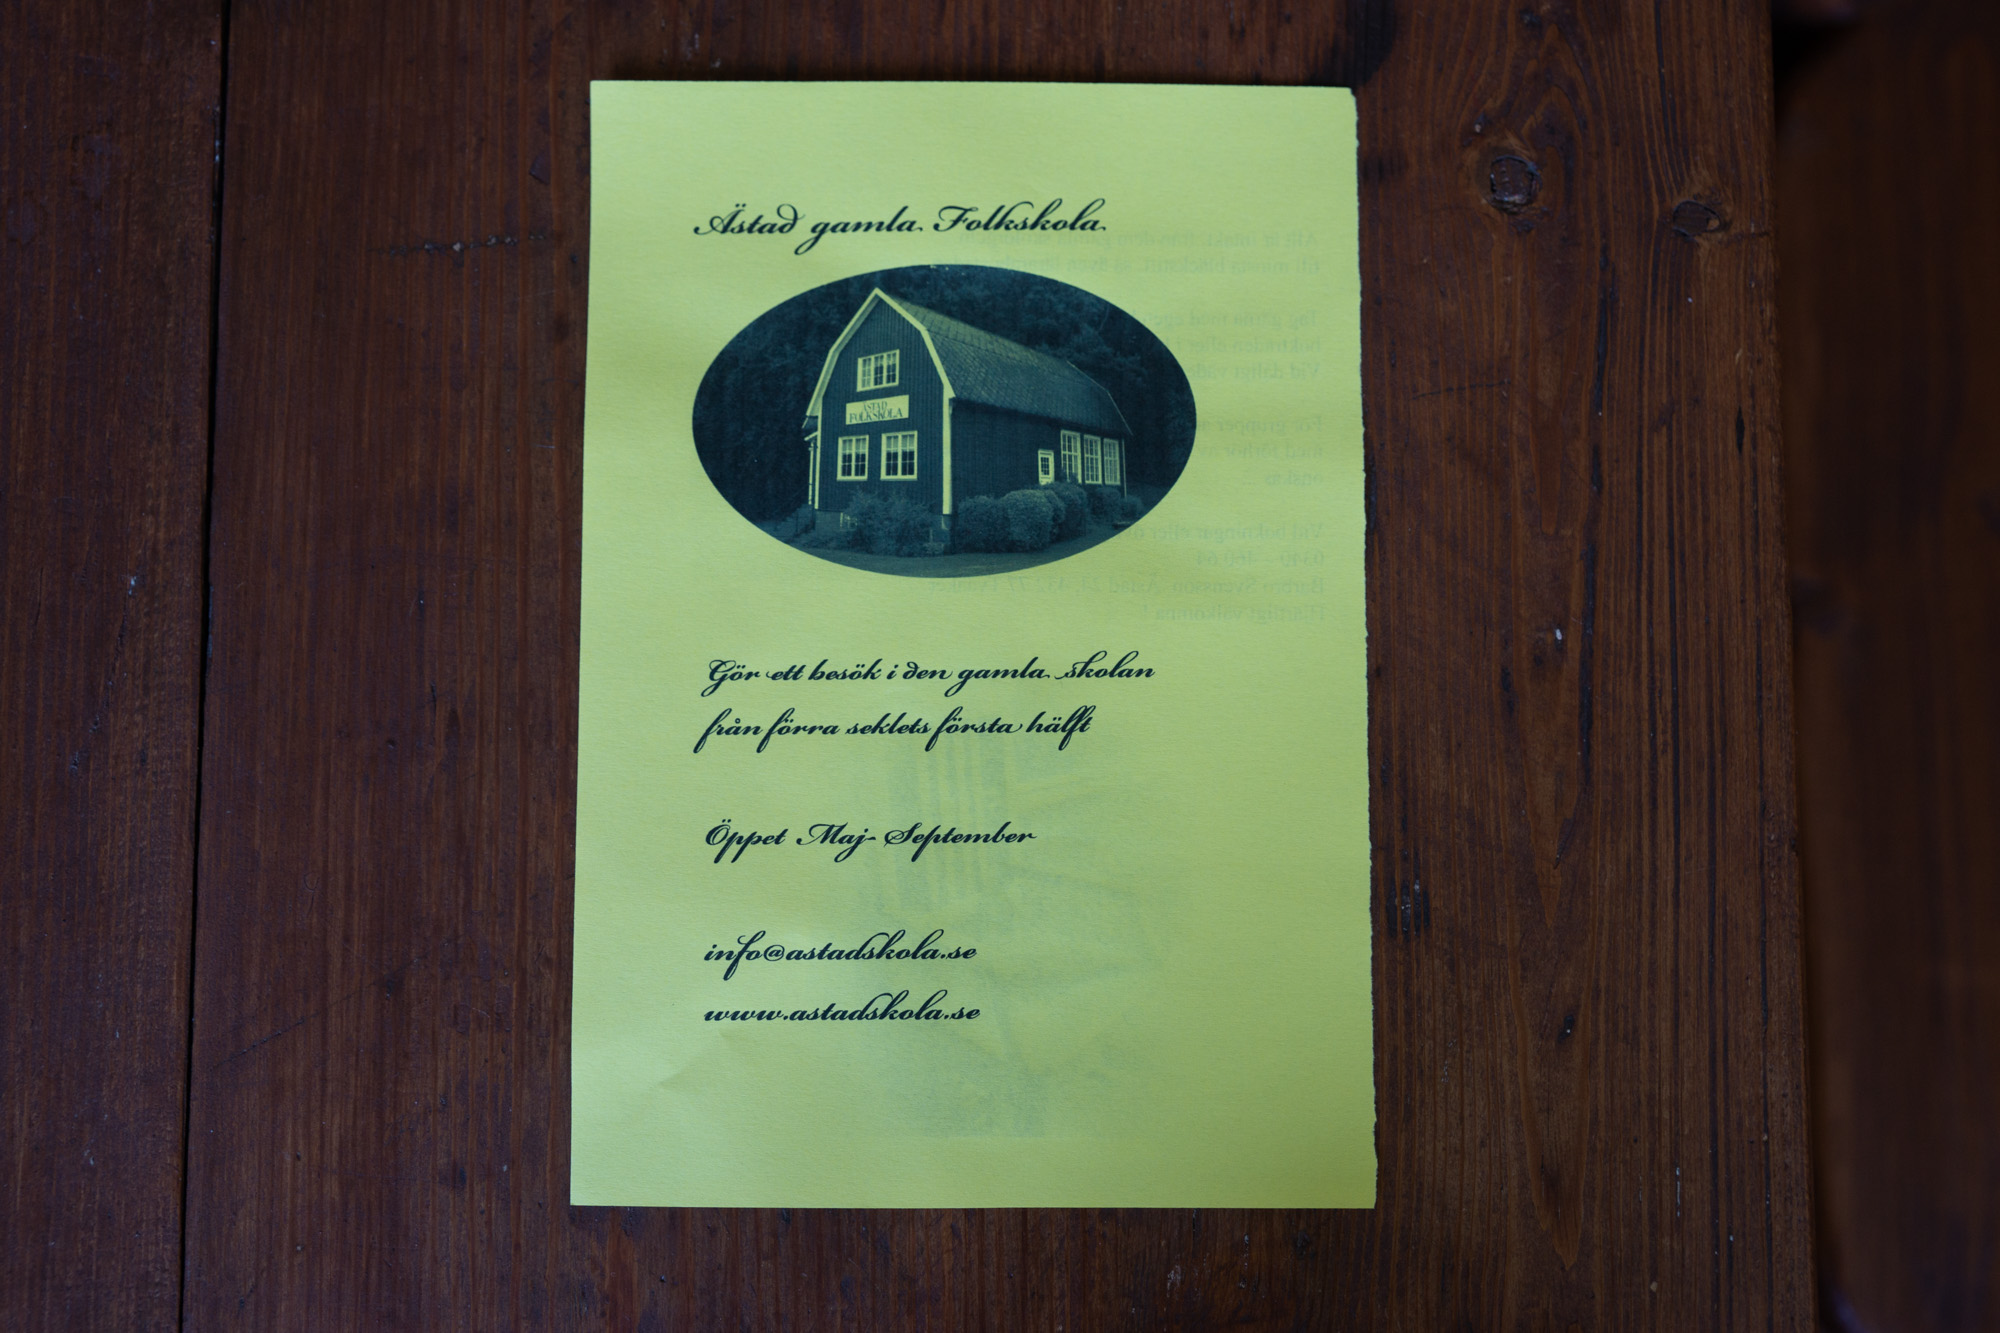 Ästad gamla Folkskola
ÄSTAD
FOLKSKOLA
Gör ett besök i den gamla skolan
från förra seklets första hälft
Öppet Maj- September
info@astadskola.se
www.astadskola.se